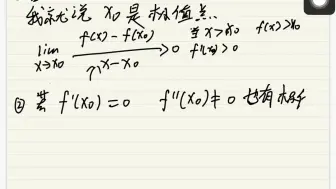 我就说 x₀ 是极值点.
lim x→x₀ f(x)-f(x₀) / x-x₀ >0 当 x>x₀ f(x)>x₀
f'(x₀)>0
② 若 f'(x₀)=0 f''(x₀)≠0 也有极